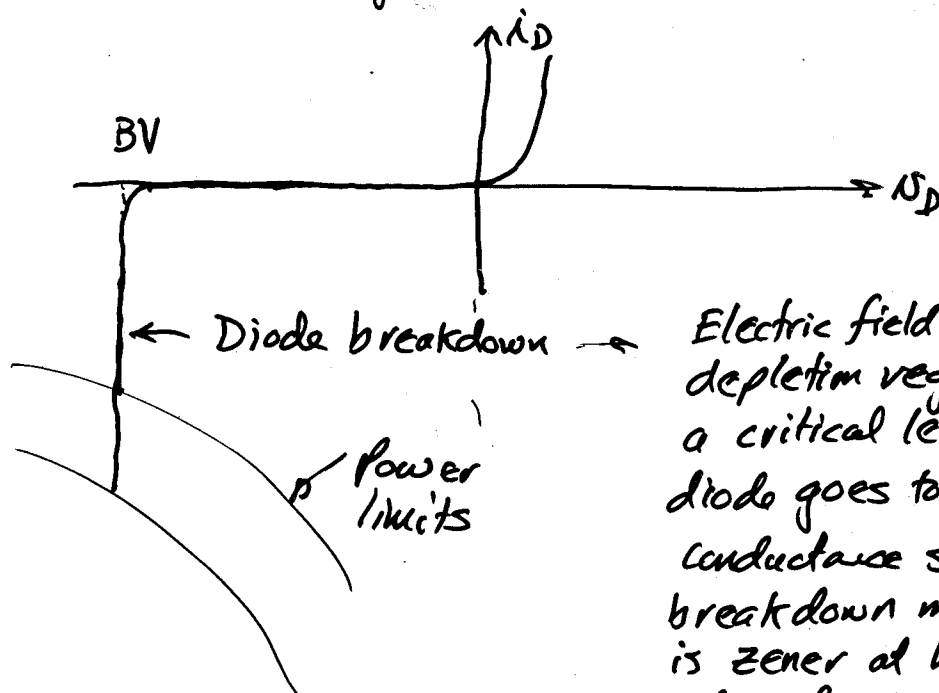 iD
BV
vD
Diode breakdown
Electric field
depletion reg
a critical le
diode goes to
conductance s
breakdown m
is zener at l
Power
limits